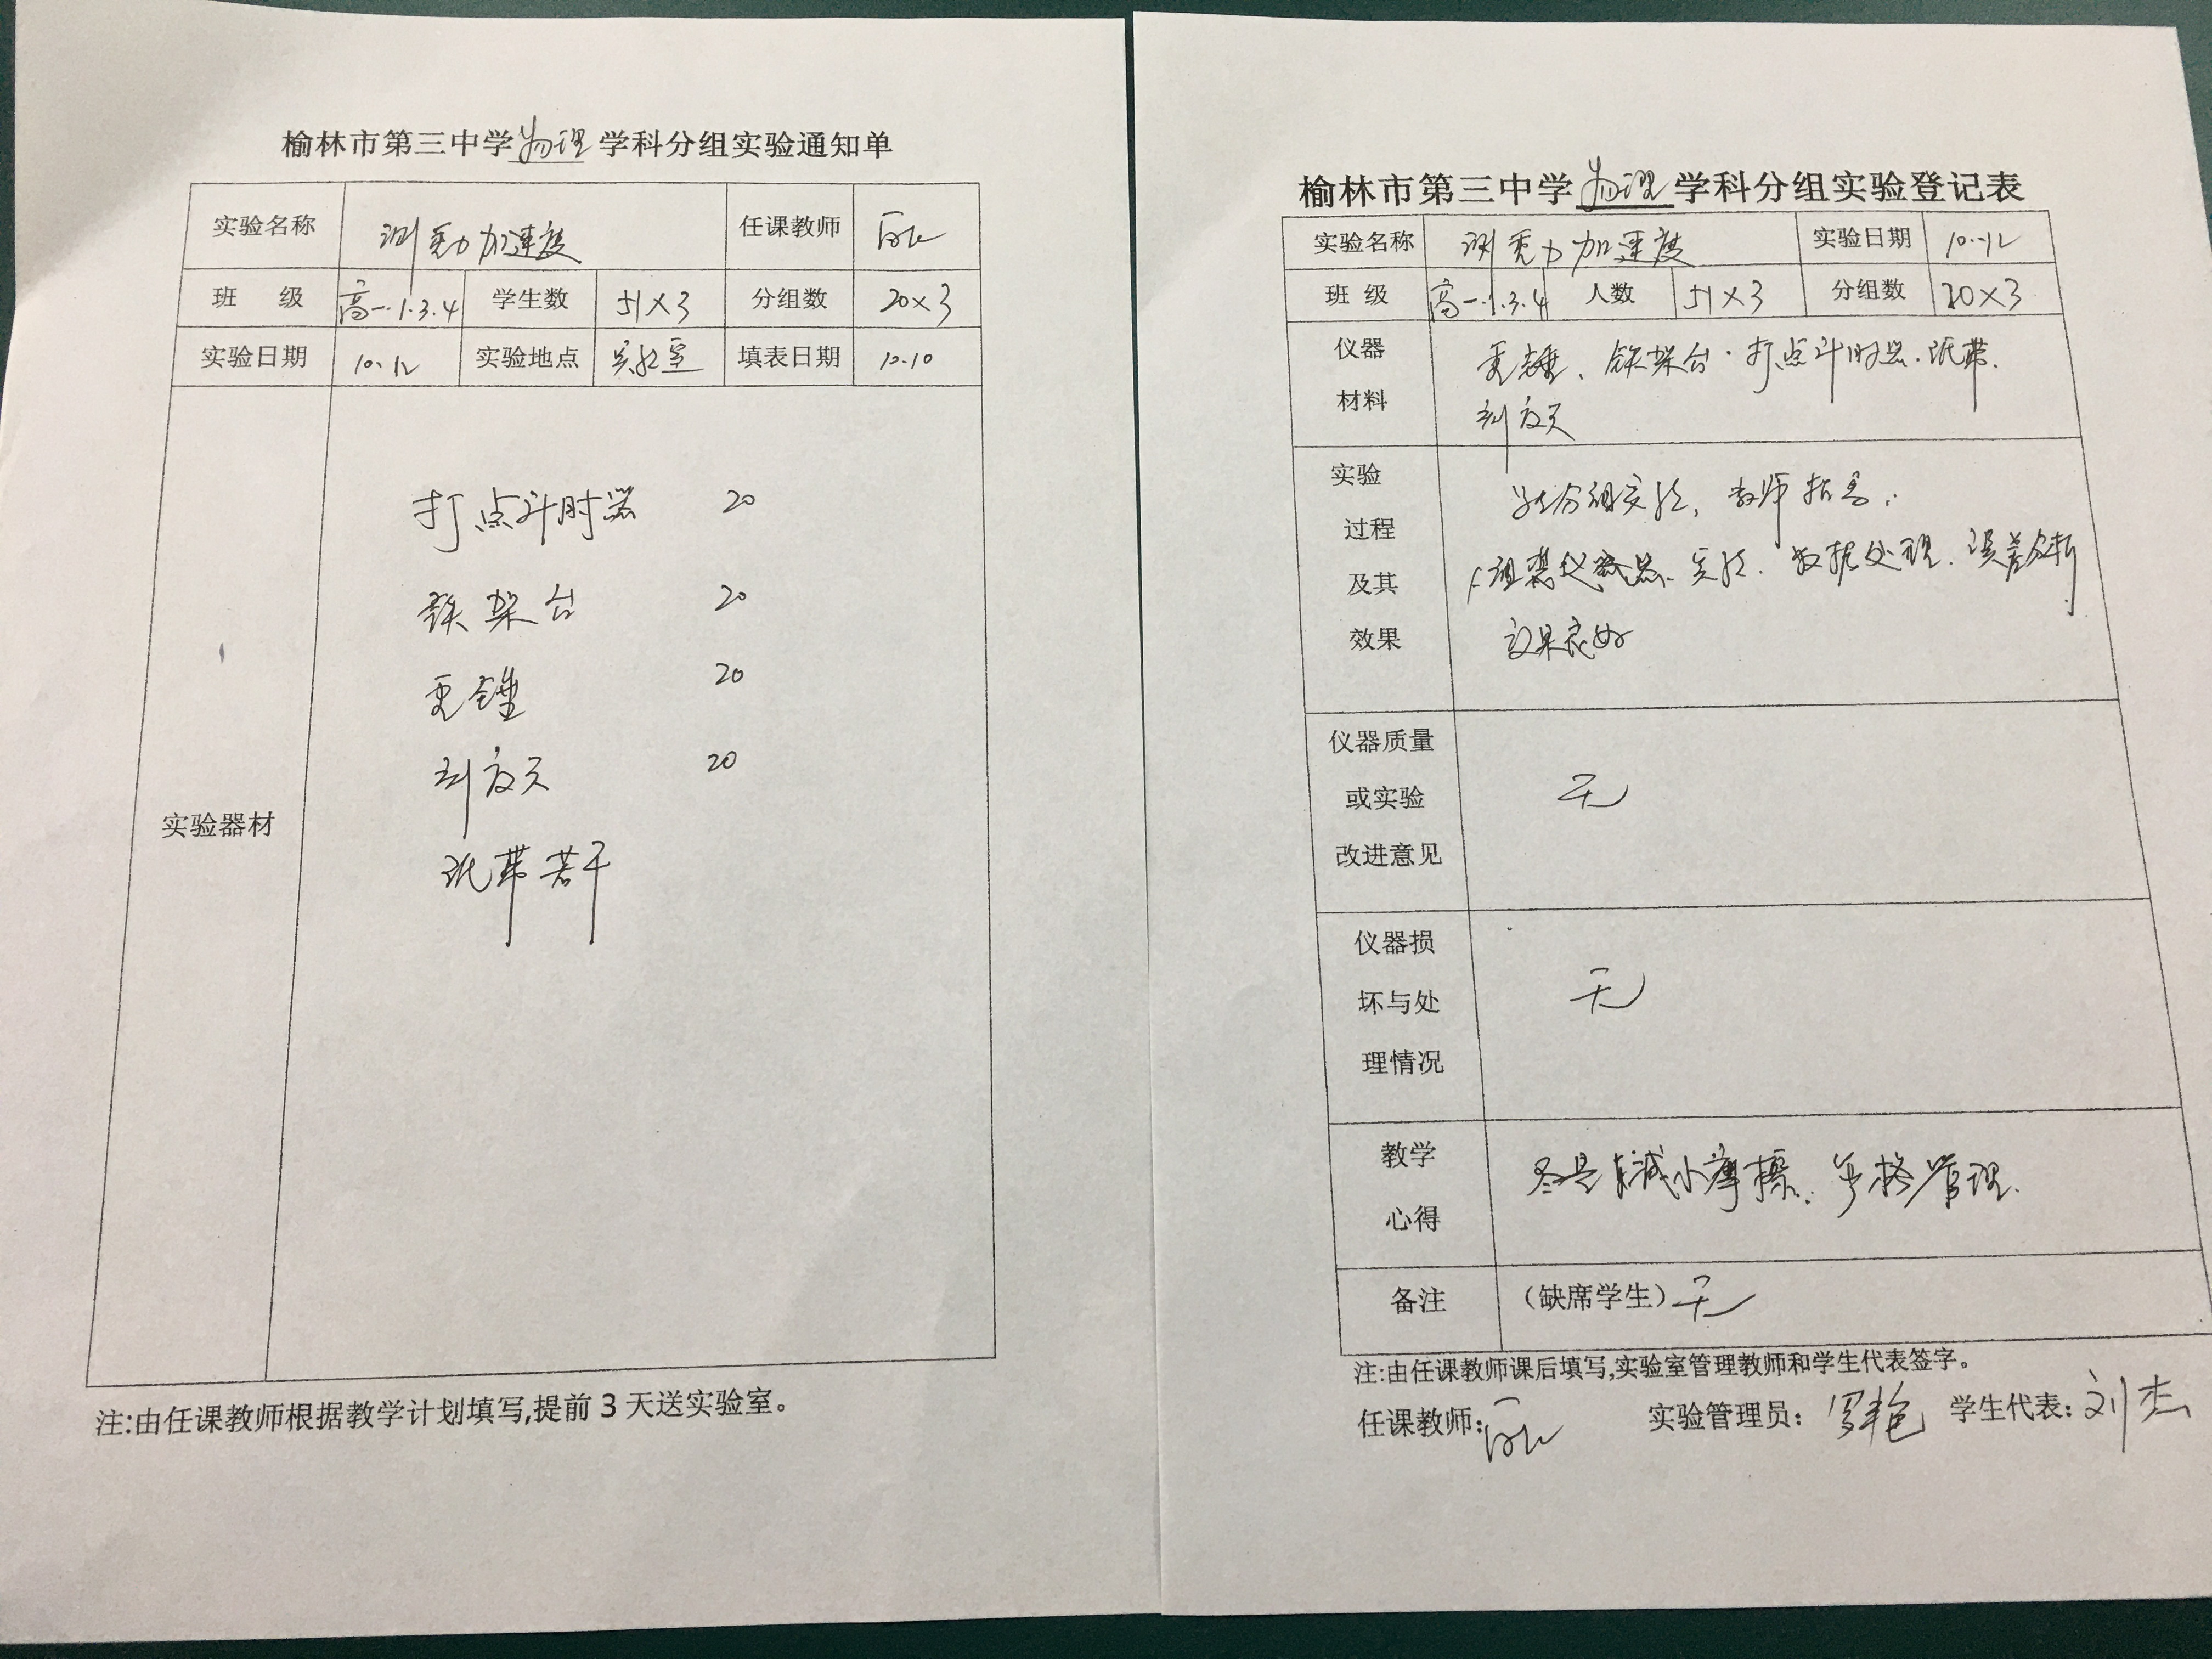 榆林市第三中学物理学科分组实验通知单
实验名称 测重力加速度 任课教师
班 级 高一.1.3.4 学生数 51×3 分组数 20×3
实验日期 10.12 实验地点 实验室 填表日期 10.10
实验器材
打点计时器 20
铁架台 20
重锤 20
刻度尺 20
纸带若干
注:由任课教师根据教学计划填写,提前3天送实验室。
榆林市第三中学物理学科分组实验登记表
实验名称 测重力加速度 实验日期 10.12
班 级 高一.1.3.4 人数 51×3 分组数 20×3
仪器材料 重锤、铁架台.打点计时器.纸带.
刻度尺
实验过程及其效果 学生分组实验,教师指导:
组装仪器、实验.数据处理.误差分析
效果良好
仪器质量或实验改进意见 无
仪器损坏与处理情况 无
教学心得 尽量减小摩擦.严格管理.
备注 (缺席学生)无
注:由任课教师课后填写,实验室管理教师和学生代表签字。
任课教师: 实验管理员:罗艳 学生代表:刘杰